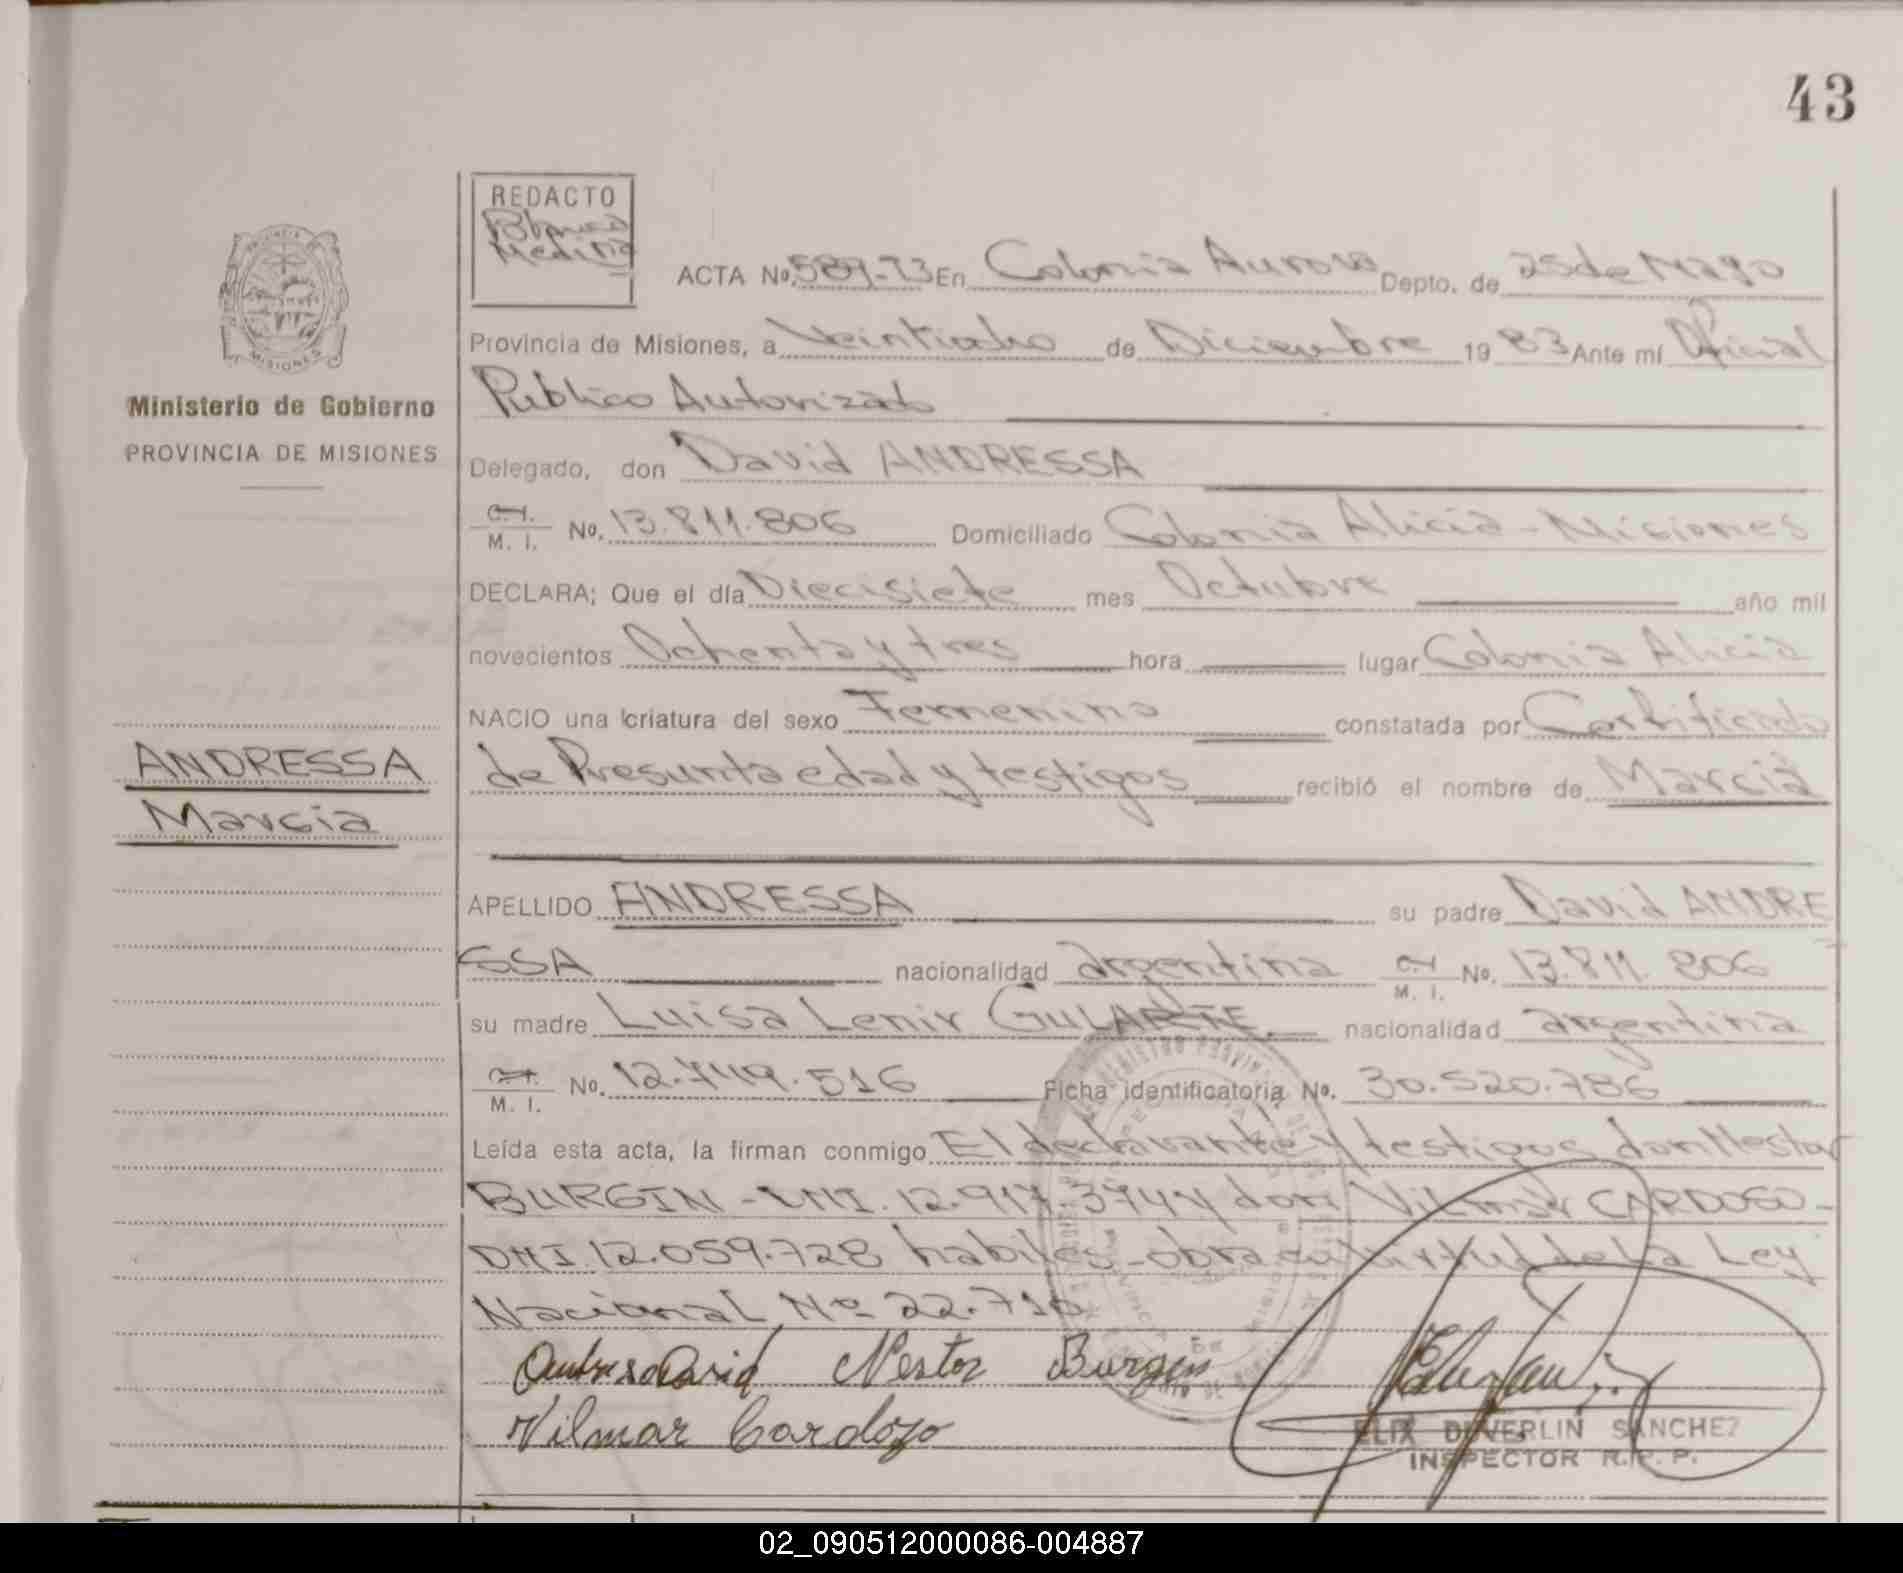 43
REDACTO
Medina
PROVINCIA DE
MISIONES
Ministerio de Gobierno
PROVINCIA DE MISIONES
ACTA No. 589-T3 En Colonia Aurora Depto. de 25 de Mayo
Provincia de Misiones, a Veintiocho de Diciembre 19 83 Ante mí Oficial
Publico Autorizado
Delegado, don David ANDRESSA
C. I. M. I. No. 13.811.806 Domiciliado Colonia Alicia - Misiones
DECLARA; Que el día Diecisiete mes Octubre año mil
novecientos Ochenta y tres hora lugar Colonia Alicia
NACIO una criatura del sexo Femenino constatada por Certificado
ANDRESSA
de Presunta edad y testigos recibió el nombre de Marcia
Marcia
APELLIDO ANDRESSA su padre David ANDRE
SSA nacionalidad argentina C. I. M. I. No. 13.811.806
su madre Luisa Lenir GULARTE. nacionalidad argentina
C. I. M. I. No. 12.749.516 Ficha identificatoria No. 30.520.786
Leída esta acta, la firman conmigo El declarante y testigos don Nestor
BURGIN - DNI. 12.917.374 y don Vilmar CARDOSO -
DNI. 12.059.728 habiles - obra en virtud de la Ley
Nacional Nº 22.710
David Nestor Burgin
Vilmar Cardozo
ELIX DEVERLIN SANCHEZ
INSPECTOR R. P. P.
02_090512000086-004887